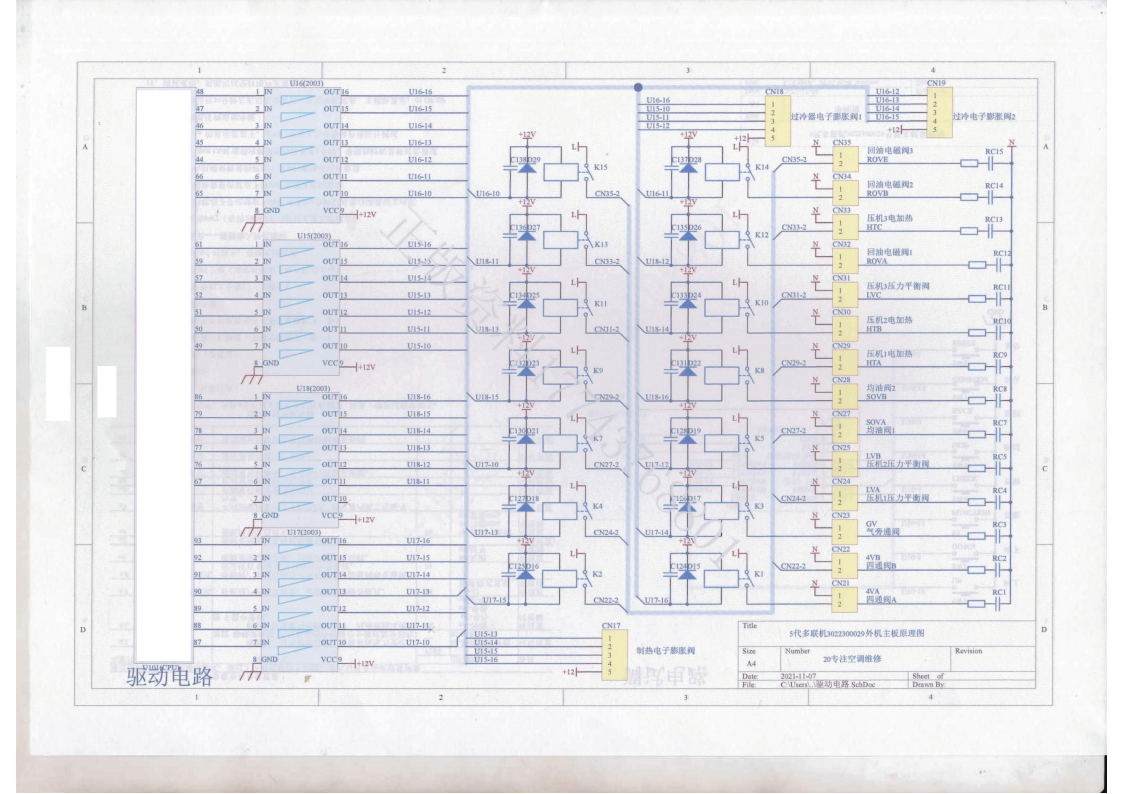 1 2 3 4
A
B
C
D
A
B
C
D
U16(2003)
48 1 IN OUT 16 U16-16
47 2 IN OUT 15 U16-15
46 3 IN OUT 14 U16-14
45 4 IN OUT 13 U16-13
44 5 IN OUT 12 U16-12
66 6 IN OUT 11 U16-11
65 7 IN OUT 10 U16-10
8 GND VCC 9 +12V
U15(2003)
61 1 IN OUT 16 U15-16
59 2 IN OUT 15
57 3 IN OUT 14 U15-14
52 4 IN OUT 13 U15-13
51 5 IN OUT 12 U15-12
50 6 IN OUT 11 U15-11
49 7 IN OUT 10 U15-10
8 GND VCC 9 +12V
U18(2003)
86 1 IN OUT 16 U18-16
79 2 IN OUT 15 U18-15
78 3 IN OUT 14 U18-14
77 4 IN OUT 13 U18-13
76 5 IN OUT 12 U18-12
67 6 IN OUT 11 U18-11
7 IN OUT 10
8 GND VCC 9 +12V
U17(2003)
93 1 IN OUT 16 U17-16
92 2 IN OUT 15 U17-15
91 3 IN OUT 14 U17-14
90 4 IN OUT 13 U17-13
89 5 IN OUT 12 U17-12
88 6 IN OUT 11 U17-11
87 7 IN OUT 10 U17-10
8 GND VCC 9 +12V
驱动电路
+12V L
C138 D29 K15
U16-10 CN35-2
+12V L
C136 D27 K13
U18-11 CN33-2
+12V L
C134 D25 K11
U18-13 CN31-2
+12V L
C132 D23 K9
U18-15 CN29-2
+12V L
C130 D21 K7
U17-10 CN27-2
+12V L
C127 D18 K4
U17-13 CN24-2
+12V L
C125 D16 K2
U17-15 CN22-2
CN17
U15-13 1
U15-14 2
U15-15 3
U15-16 4
+12 5
制热电子膨胀阀
CN18
U16-16 1
U15-10 2
U15-11 3
U15-12 4
+12 5
过冷器电子膨胀阀1
CN19
U16-12 1
U16-13 2
U16-14 3
U16-15 4
+12 5
过冷电子膨胀阀2
+12V L
C137 D28 K14
U16-11 CN35-2
+12V L
C135 D26 K12
U18-12 CN33-2
+12V L
C133 D24 K10
U18-14 CN31-2
+12V L
C131 D22 K8
U18-16 CN29-2
+12V L
C128 D19 K5
U17-12 CN27-2
+12V L
C126 D17 K3
U17-14 CN24-2
+12V L
C124 D15 K1
U17-16 CN22-2
N CN35 1 2 回油电磁阀3 ROVE RC15 N
N CN34 1 2 回油电磁阀2 ROVB RC14
N CN33 1 2 压机3电加热 HTC RC13
N CN32 1 2 回油电磁阀1 ROVA RC12
N CN31 1 2 压机3压力平衡阀 LVC RC11
N CN30 1 2 压机2电加热 HTB RC10
N CN29 1 2 压机1电加热 HTA RC9
N CN28 1 2 均油阀2 SOVB RC8
N CN27 1 2 SOVA 均油阀1 RC7
N CN25 1 2 LVB 压机2压力平衡阀 RC5
N CN24 1 2 LVA 压机1压力平衡阀 RC4
N CN23 1 2 GV 气旁通阀 RC3
N CN22 1 2 4VB 四通阀B RC2
N CN21 1 2 4VA 四通阀A RC1
Title
5代多联机3022300029外机主板原理图
Size Number Revision
A4 20专注空调维修
Date: 2021-11-07 Sheet of
File: C:\Users\..\驱动电路.SchDoc Drawn By:
1 2 3 4